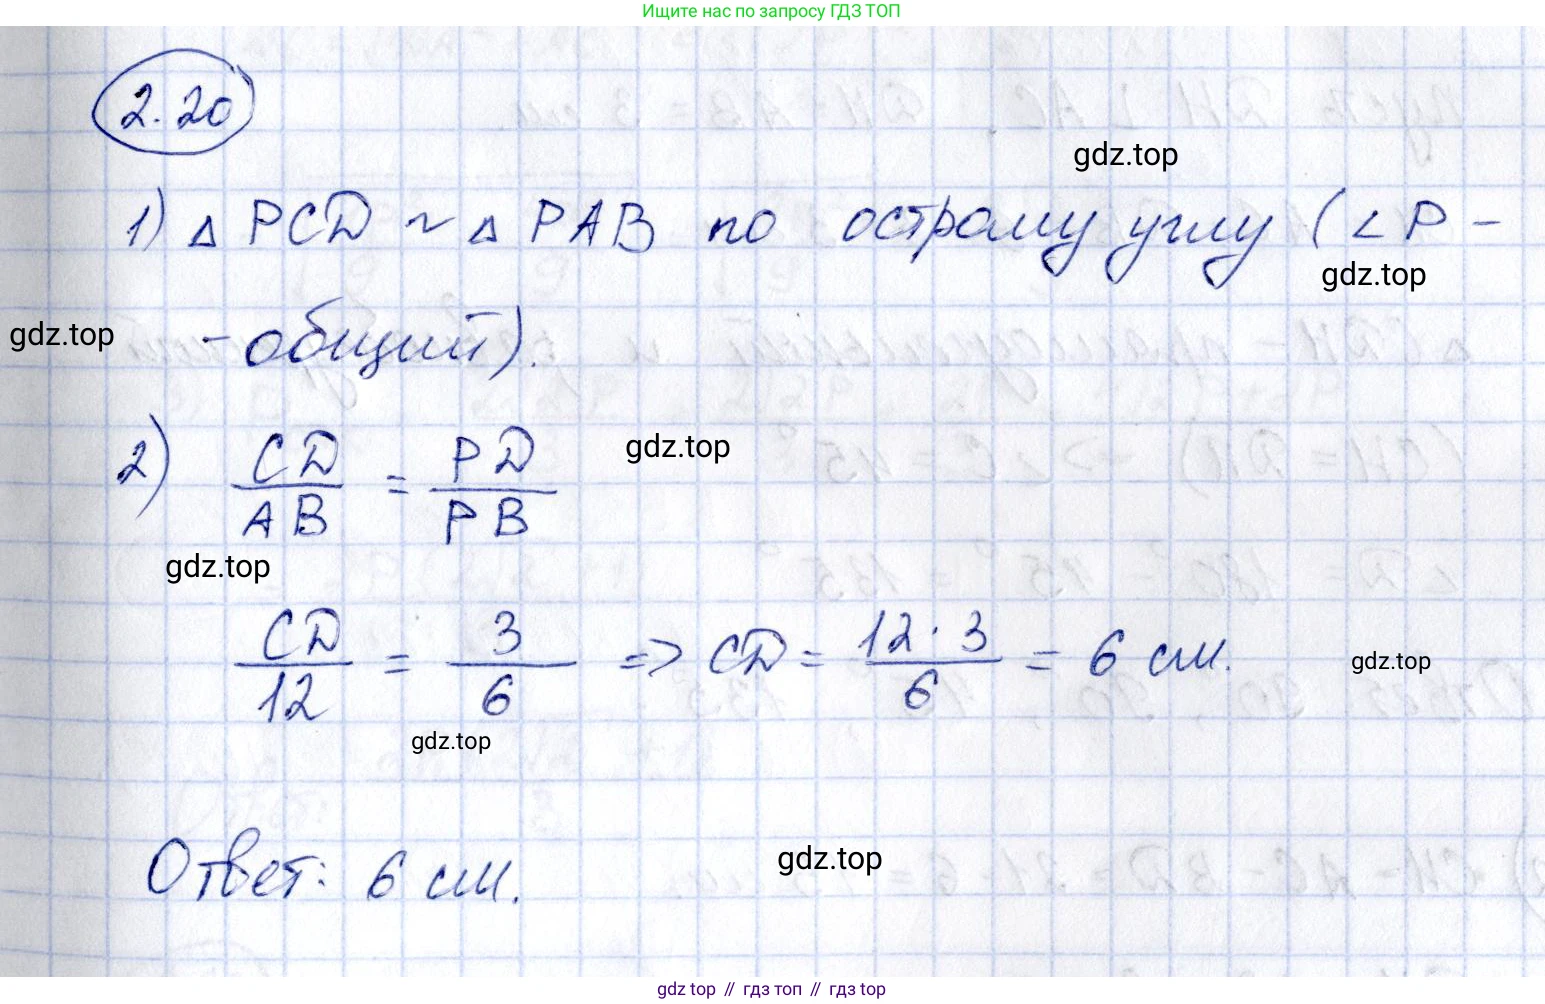 Ищите нас по запросу ГДЗ ТОП
2.20
gdz.top
1) △ PCD ~ △ PAB по острому углу (∠P -
gdz.top
gdz.top
- общий).
2) CD/AB = PD/PB
gdz.top
gdz.top
CD/12 = 3/6 => CD = 12·3/6 = 6 см.
gdz.top
gdz.top
Ответ: 6 см.
gdz.top
gdz top // гдз топ // гдз top